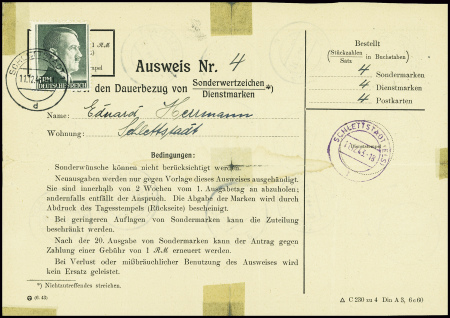 1 RM
DEUTSCHES REICH
SCHLETTSTADT
Ausweis Nr. 4
den Dauerbezug von Sonderwertzeichen *)
Dienstmarken
Name: Eduard Herrmann
Wohnung: Schlettstadt
Bedingungen:
Sonderwünsche können nicht berücksichtigt werden.
Neuausgaben werden nur gegen Vorlage dieses Ausweises ausgehändigt.
Sie sind innerhalb von 2 Wochen vom 1. Ausgabetag an abzuholen;
andernfalls entfällt der Anspruch. Die Abgabe der Marken wird durch
Abdruck des Tagesstempels (Rückseite) bescheinigt.
Bei geringeren Auflagen von Sondermarken kann die Zuteilung
beschränkt werden.
Nach der 20. Ausgabe von Sondermarken kann der Antrag gegen
Zahlung einer Gebühr von 1 RM erneuert werden.
Bei Verlust oder mißbräuchlicher Benutzung des Ausweises wird
kein Ersatz geleistet.
*) Nichtzutreffendes streichen.
(6. 42)
Bestellt
(Stückzahlen in Buchstaben)
Satz
4 Sondermarken
4 Dienstmarken
4 Postkarten
SCHLETTSTADT
C 230 zu 4 Din A 5, 6c 60